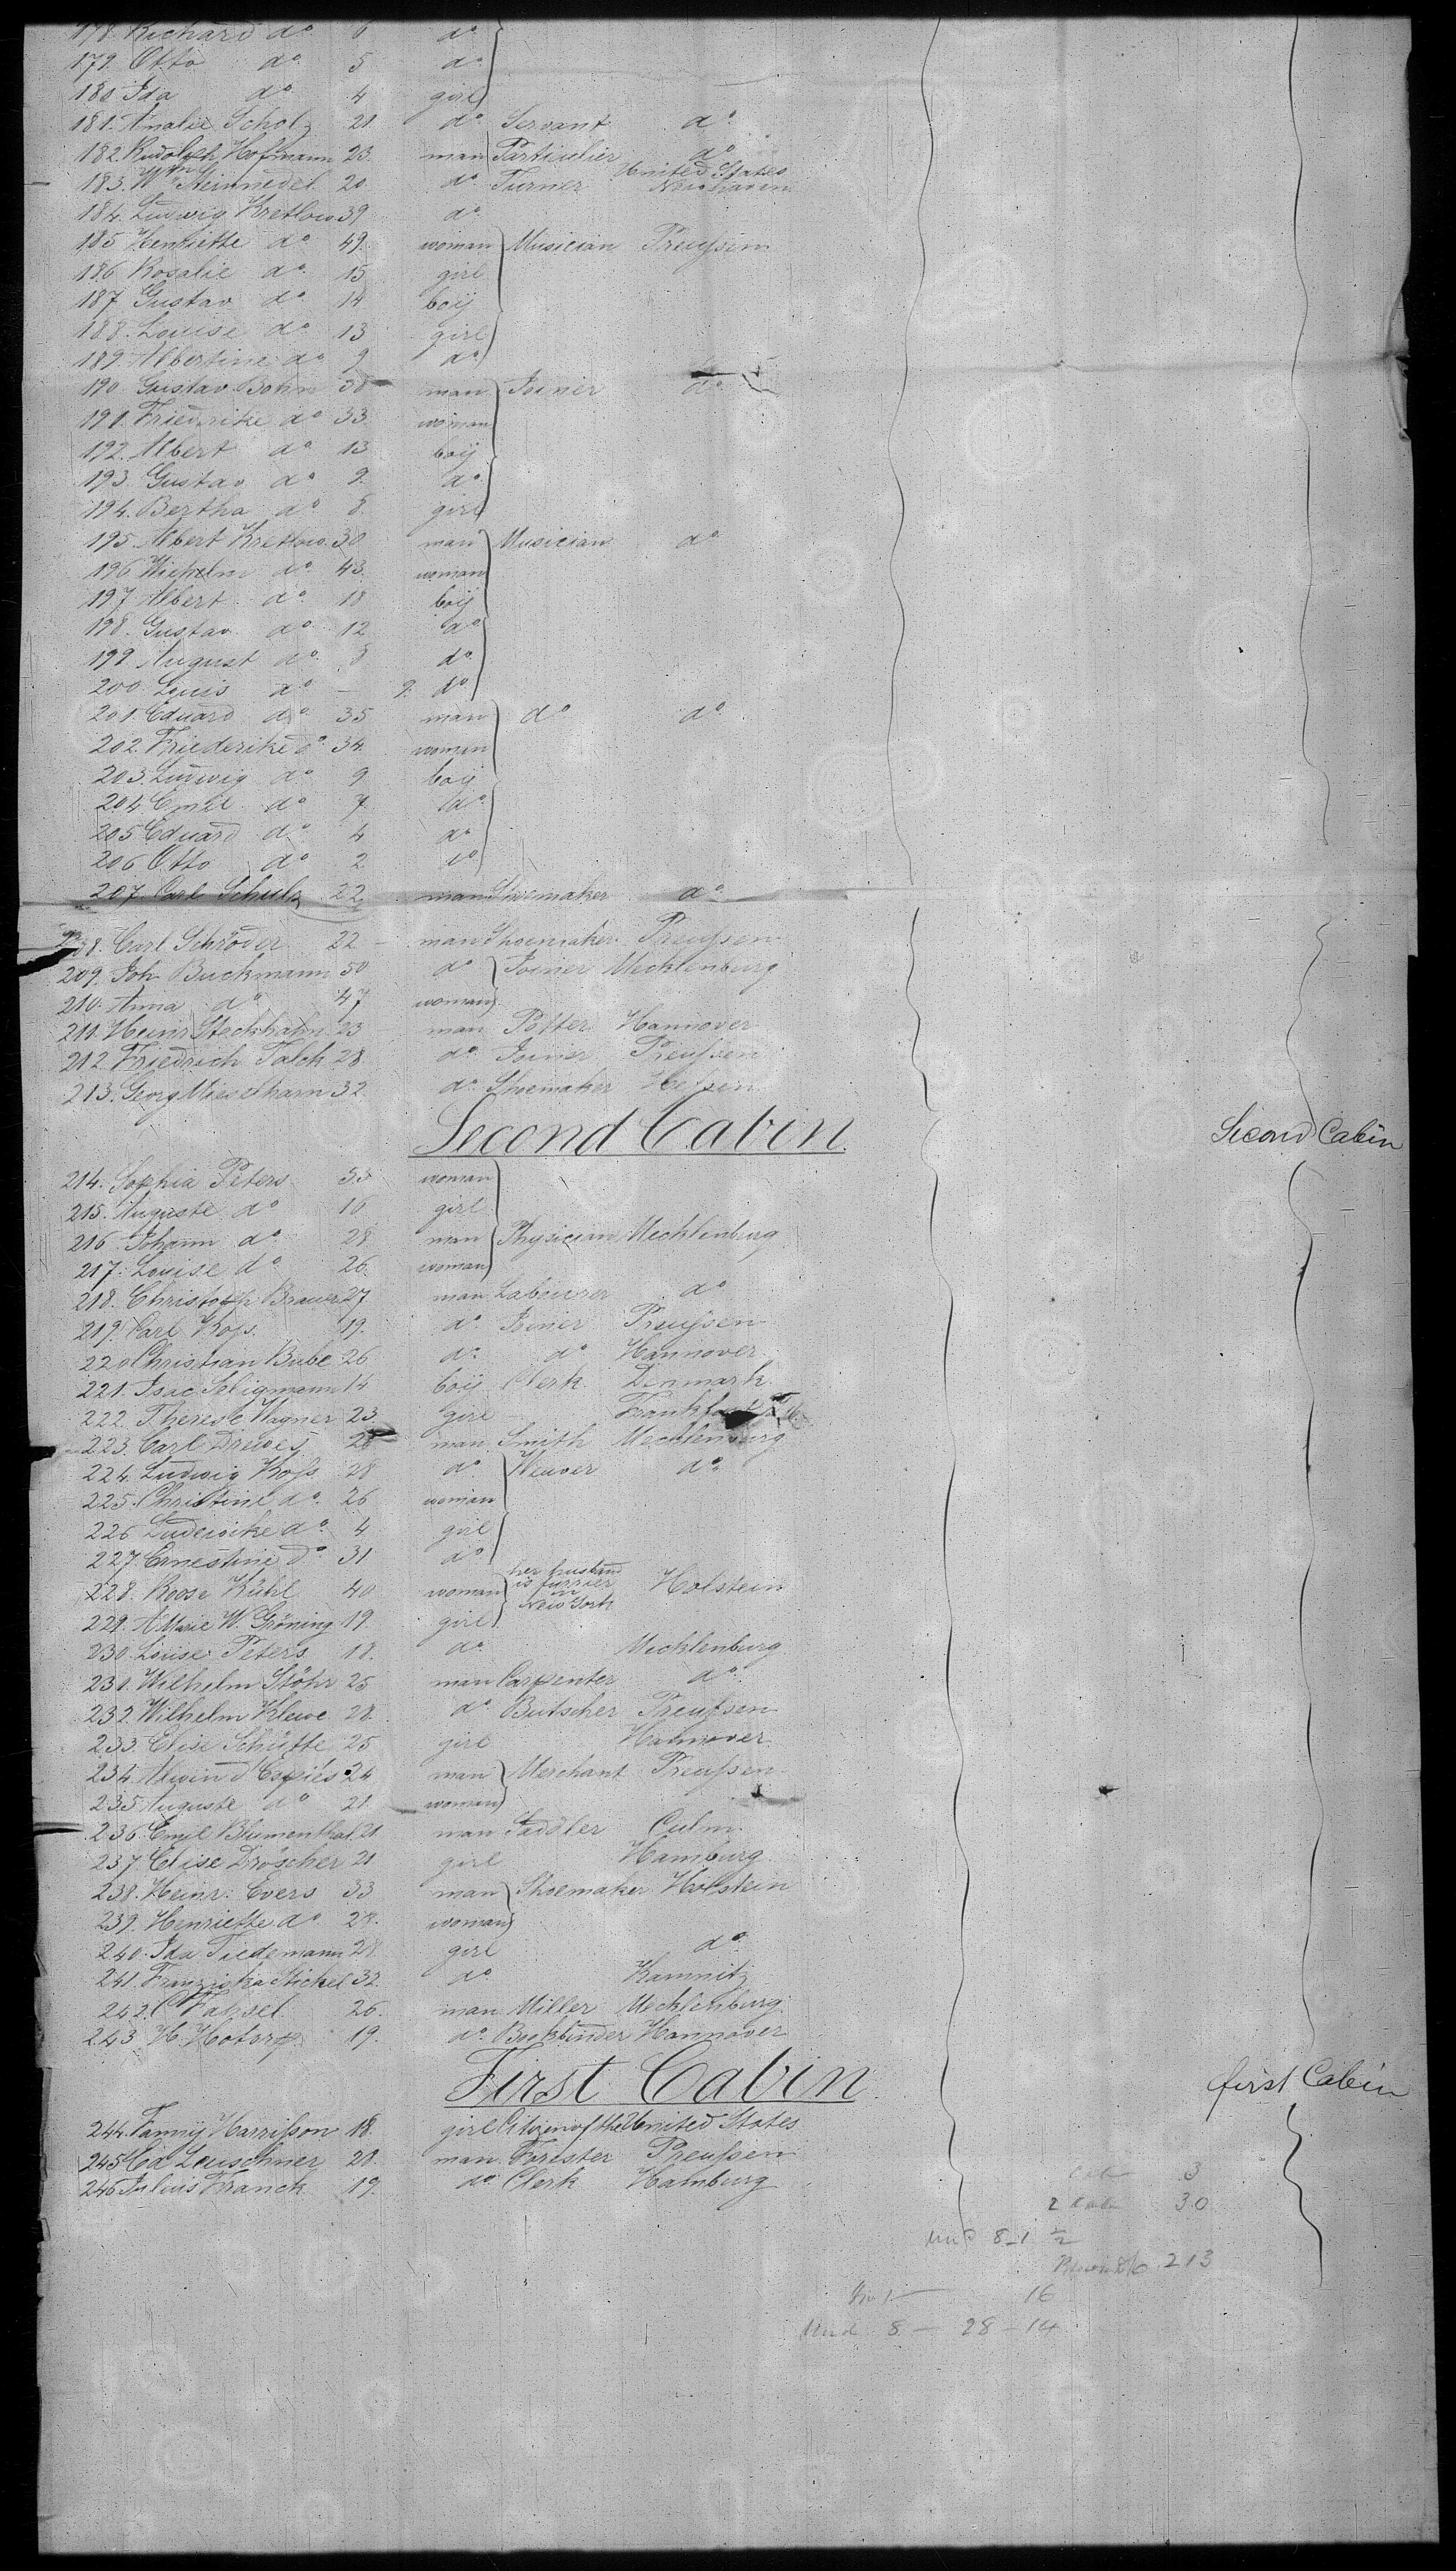 178. Richard do 6 do
179. Otto do 5 do
180 Ida do 4 girl
181. Amalie Scholz 21 do Servant do
182. Rudolph Hofmann 23. man Particulier do
183. Wm Steinmedel 20 do Turner United States Newhaven
184. Ludwig Kretlow 39 do
185 Henriette do 49. woman Musician Preußen
186 Rosalie do 15 girl
187 Gustav do 14 boij
188. Louise do 13 girl
189. Albertine do 9 do
190. Gustav Bohn 38 man Joiner do
191. Friedrike do 33 woman
192. Albert do 13 boij
193. Gustav do 9. do
194. Bertha do 8. girl
195. Albert Kretlow 30 man Musician do
196 Wilhelm do 43. woman
197 Albert do 18 boij
198. Gustav do 12 do
199 August do 8 do
200. Louis do — 9. do
201. Eduard do 35 man do do
202. Friederike do 34. woman
203. Ludwig do 9 boij
204. Emil do 7. do
205 Eduard do 4 do
206 Otto do 2 do
207. Carl Schulz 22 man Shoemaker do
208. Carl Schröder 22 — man Shoemaker Preußen
209. Joh Buckmann 50 do Joiner Mecklenburg
210. Anna do 47 woman
211. Heinr Steckhahn 23 man Potter Hannover
212. Friedrich Talck 28 do Joiner Preußen
213. Georg Mieselharn 32. do Shoemaker Heßen
Second Cabin
Second Cabin
214. Sophia Peters 55 woman
215. Auguste do 16 girl
216 Johann do 28 man Physician Mecklenburg
217. Louise do 26. woman
218. Christoph Brauer 27. man Labourer do
219. Carl Koß. 19. do Joiner Preußen
220 Christian Bube 26 do do Hannover
221. Isac Seligmann 14 boij Clerk Denmark
222. Therese Wagner 23 girl
223. Carl Drewes 28 man Smith Mecklenburg
224. Ludwig Koß 28 do Weaver do
225. Christine do 26 woman
226 Ludewike do 4 girl
227. Ernestine do 31 do
228. Roosa Kühl 40 woman her husband is furrier in New York Holstein
229. AMarie W. Gröning 19. girl
230. Louise Peters 18. do Mecklenburg
231. Wilhelm Stöhr 25 man Carpenter do
232. Wilhelm Klewe 28. do Butscher Preußen
233. Elise Schütte 25 girl Hannover
234. Alwin d'Espiés 24 man Merchant Preußen
235 Auguste do 21. woman
236. Emil Blumenthal 21 man Saddler Culm.
237. Elise Dröscher 21 girl Hamburg
238. Heinr: Evers 33 man Shoemaker Holstein
239. Henriette do 28. woman
240. Ida Tiedemann 28. girl do
241. Franziska Stickel 32. do Kamnitz
242. C Fahsel 26. man Miller Mecklenburg.
243. H. Hotorp. 19. do Bookbinder Hannover
First Cabin
first Cabin
244. Fannij Harrißon 18. girl Citizen of the United States
245 Ed Leuschner 28. man Forester Preußen
246 Julius Franck 19. do Clerk Hamburg
3
2 30
8-1
213
16
8 — 28 - 14